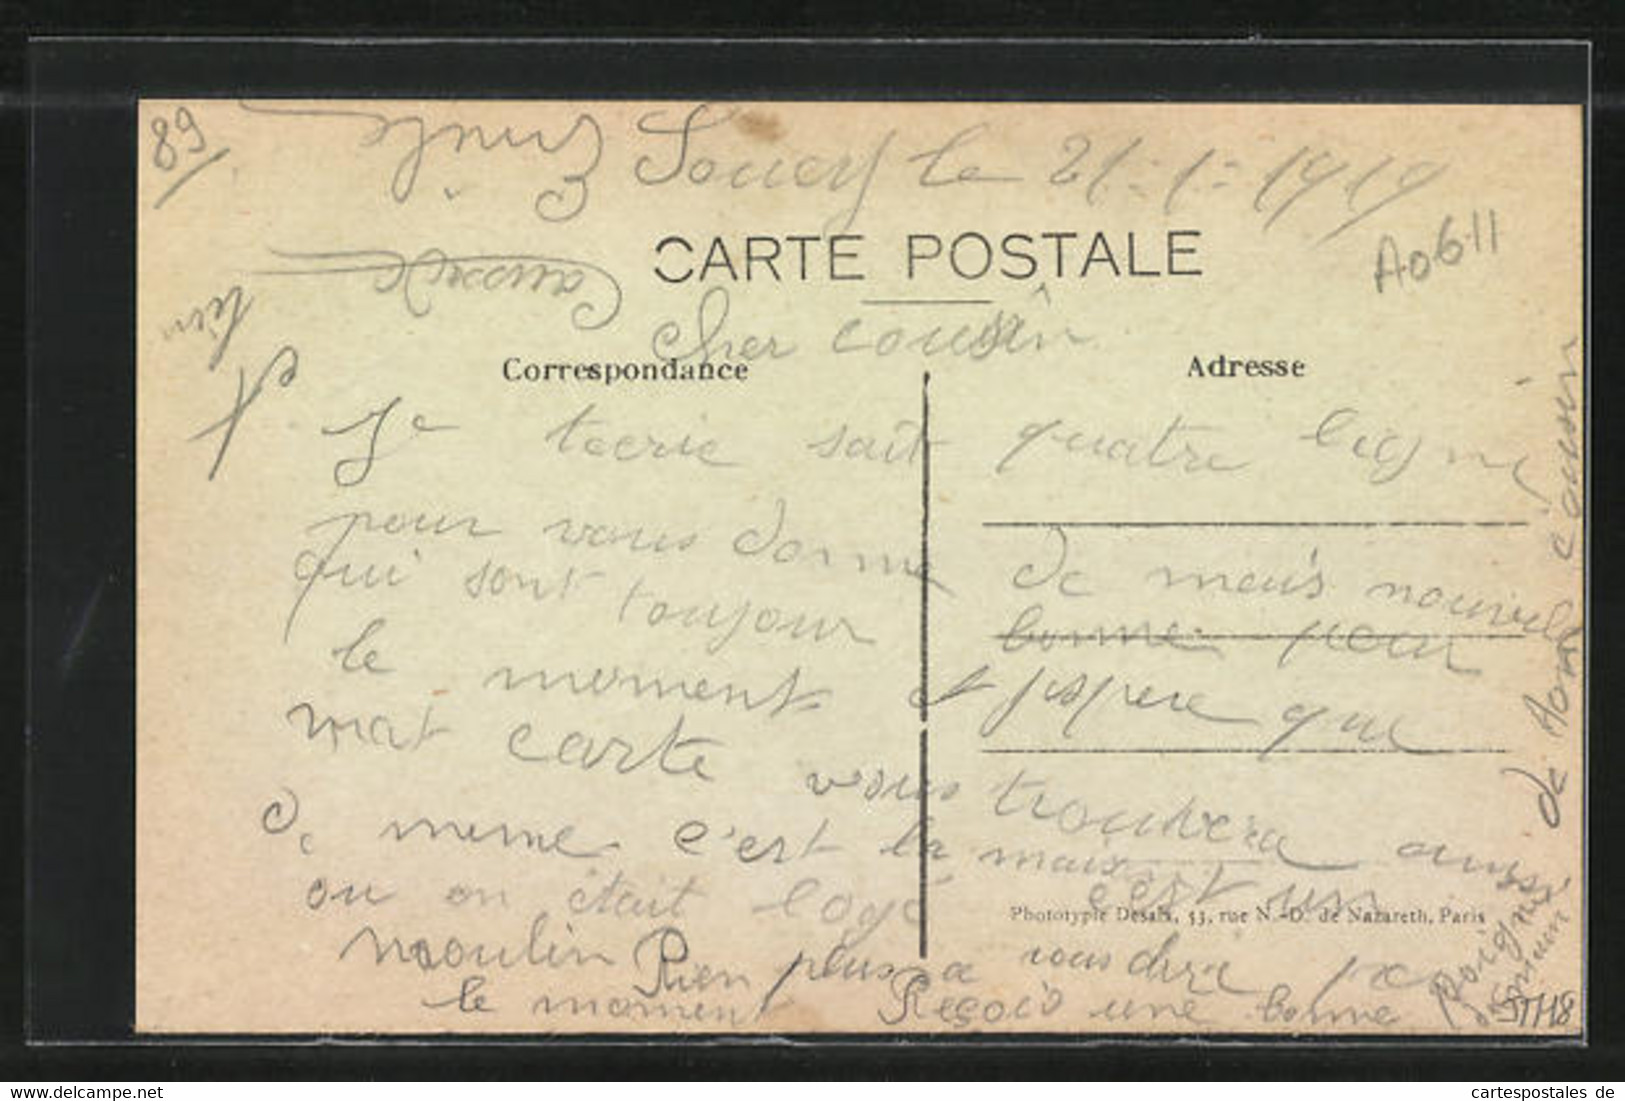 89
Soucy le 21-1-1919
CARTE POSTALE
A0611
Cher cousin
Correspondance
Adresse
Je tecrie sait quatre ligne
pour vous donne de meus nouvele
qui sont toujour bonne pour
le moment et jespere que
mat carte vous trouvera ausi
de meme c'est la maison
ou on était logé c'est un
moulin Rien plus a vous dire pour
le moment Reçois une bonne
poigné
de main
de ton cousin
Emile
et
Phototypie Desaix, 53, rue N.-D. de Nazareth, Paris
STH8
www.delcampe.net
cartespostales de